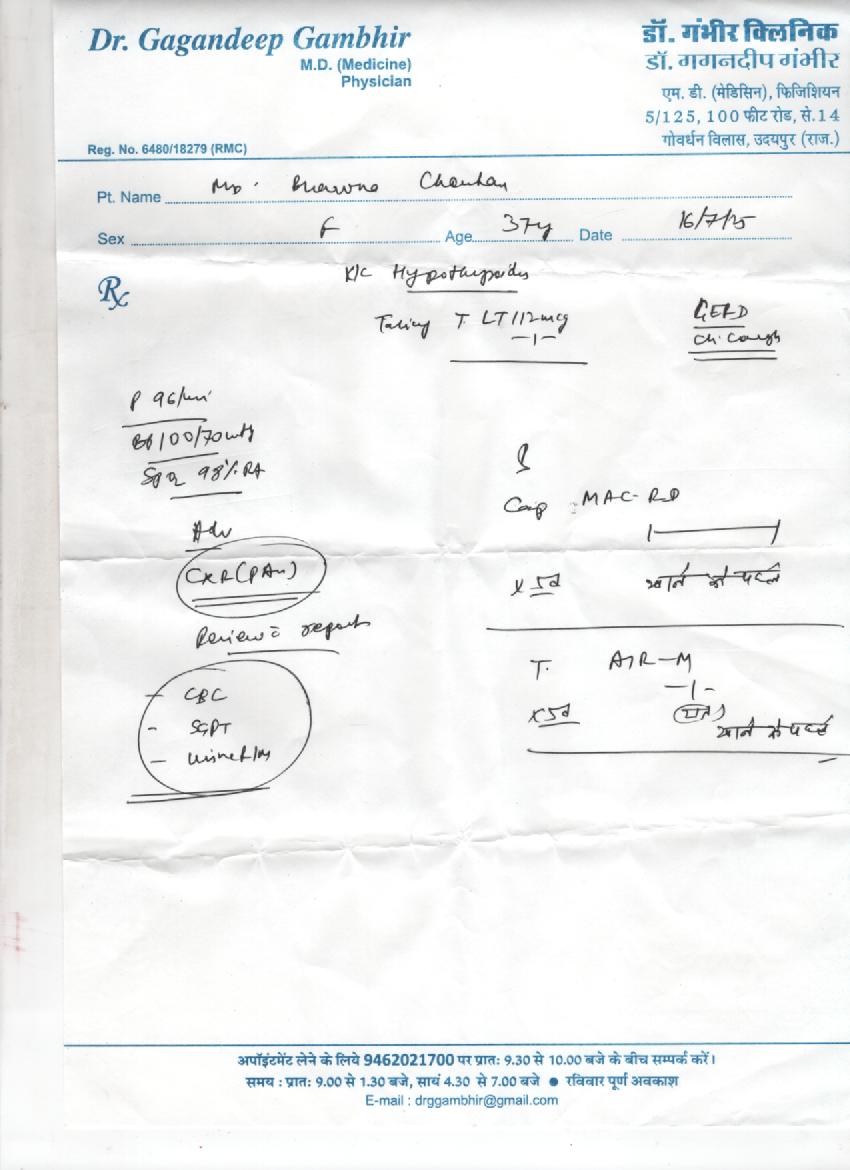 Dr. Gagandeep Gambhir
M.D. (Medicine)
Physician
Reg. No. 6480/18279 (RMC)
डॉ. गंभीर क्लिनिक
डॉ. गगनदीप गंभीर
एम. डी. (मेडिसिन), फिजिशियन
5/125, 100 फीट रोड, से.14
गोवर्धन विलास, उदयपुर (राज.)
Pt. Name Chauhan
Sex F Age 37y Date 16/7/25
Rx
K/C Hypothyroidis
Taking T. LT 112mcg
-1-
GERD
Ch. Cough
P 96/min
BP 100/70mmHg
SpO2 98% RA
Adv
CXR (PAv)
Review c̄ reports
- CBC
- SGPT
- Urine R/M
Cap MAC-RD
x 5d खाने से पहले
T. AIR-M
-1-
x 5d (रात) खाने से पहले
अपॉइंटमेंट लेने के लिये 9462021700 पर प्रातः 9.30 से 10.00 बजे के बीच सम्पर्क करें।
समय : प्रातः 9.00 से 1.30 बजे, सायं 4.30 से 7.00 बजे ● रविवार पूर्ण अवकाश
E-mail : drggambhir@gmail.com